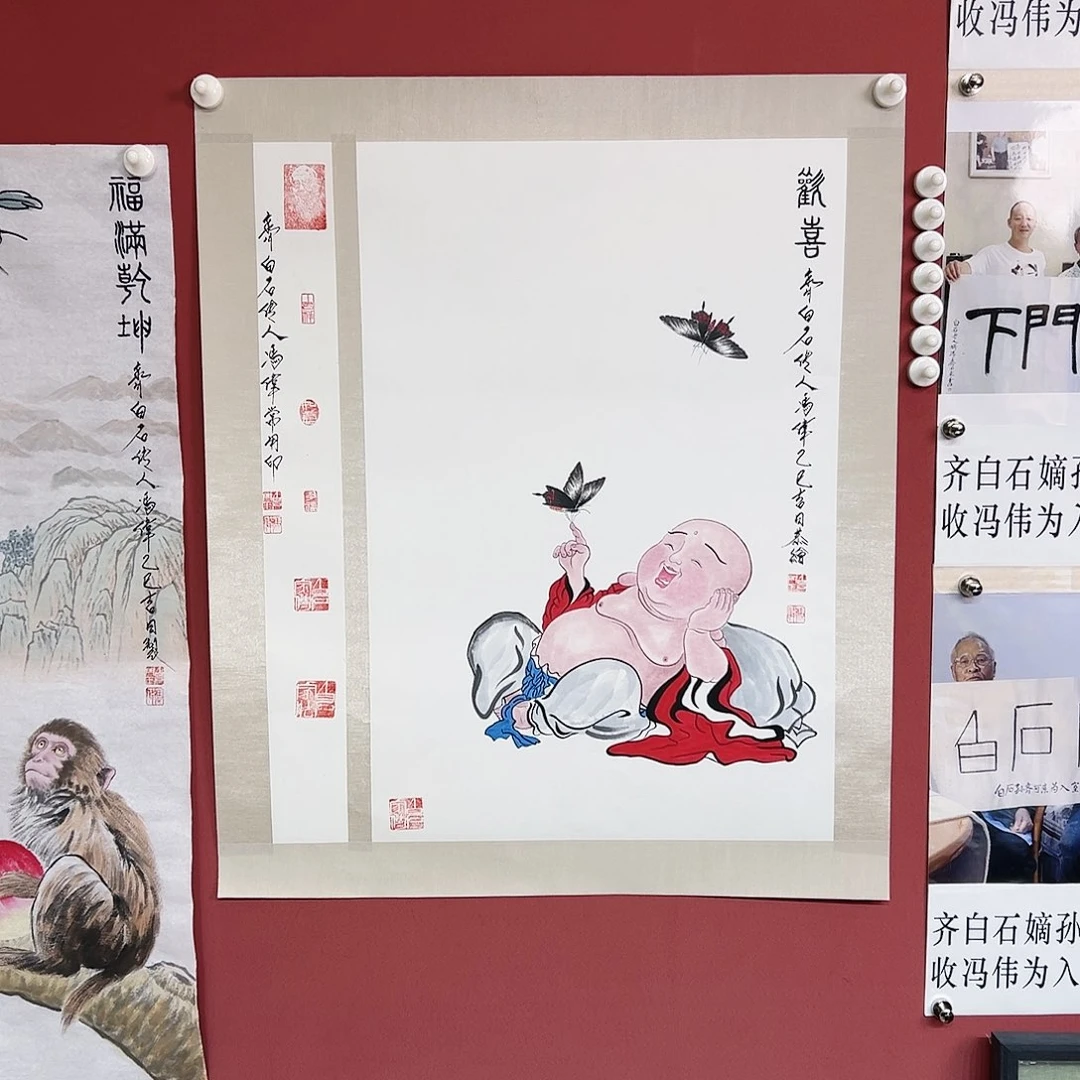 福滿乾坤
齊白石傳人馮偉乙巳吉日製
齊白石傳人馮偉常用印
歡喜
齊白石傳人馮偉乙巳吉日恭繪
收冯伟为
門下
齐白石嫡孙
收冯伟为入
白石
齐白石嫡孙
收冯伟为入